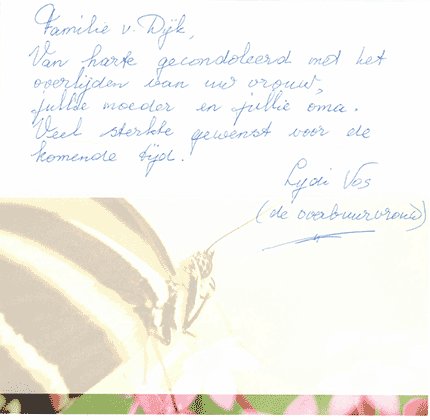 Familie v. Dijk,
Van harte gecondoleerd met het
overlijden van uw vrouw,
jullie moeder en jullie oma.
Veel sterkte gewenst voor de
komende tijd!
Lydi Vos
(de overbuurvrouw)